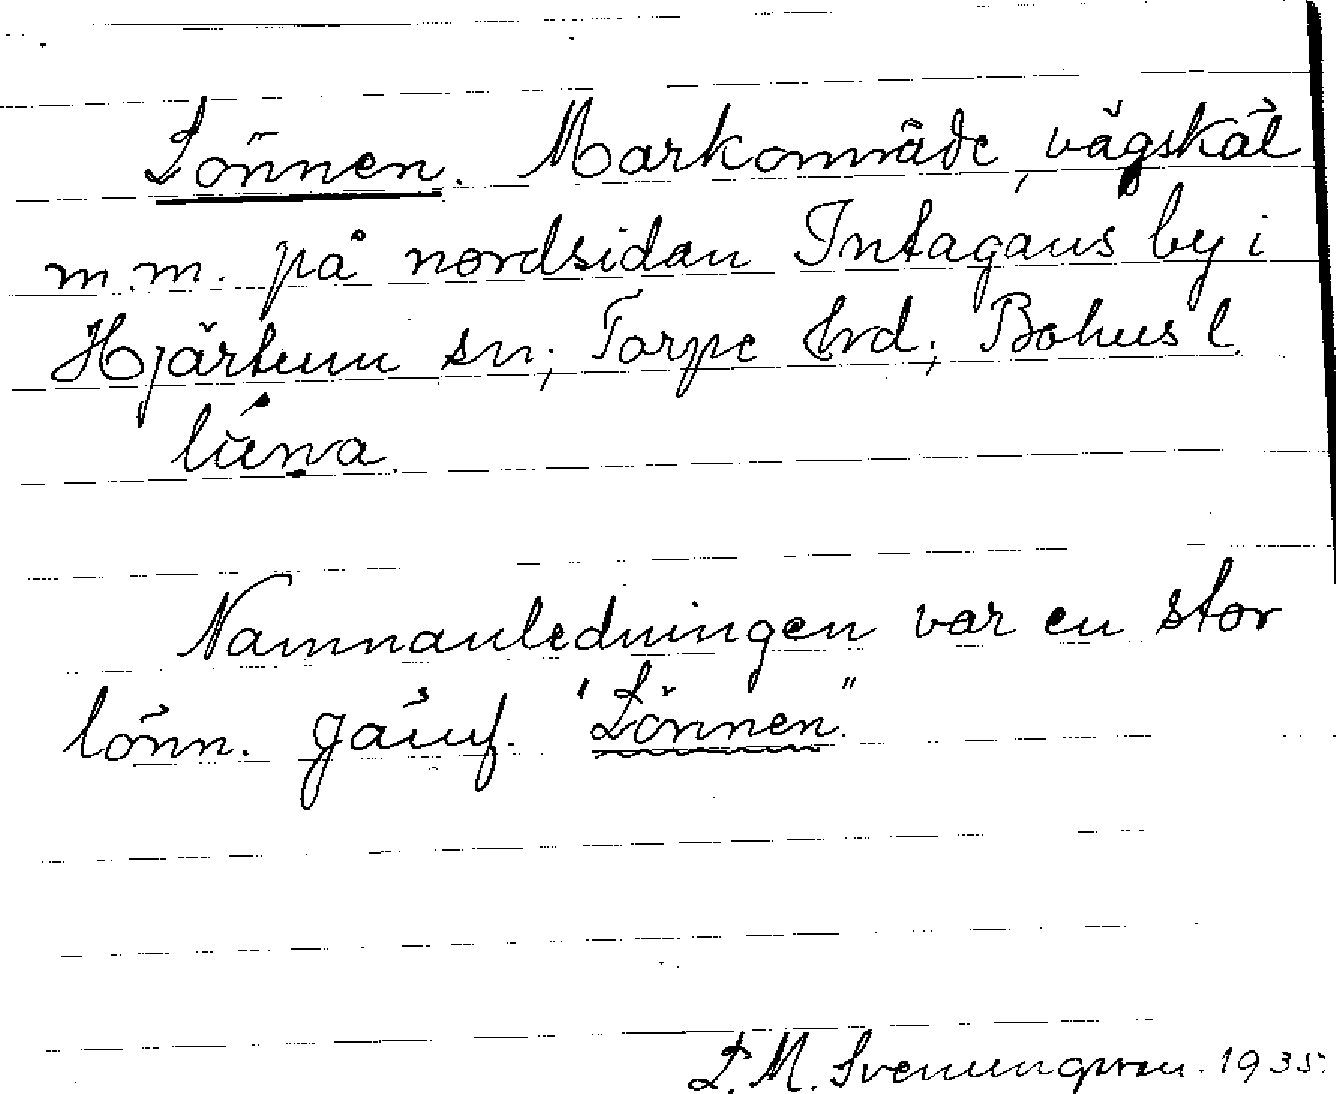 Lönnen. Markområde, vägskäl
m.m. på nordsidan Intagans by i
Hjärtum sn; Torpe hrd; Bohusl.
Namnanledningen var en stor
lönn. Jämf. "Lönnen".
L. M. Svenungsson. 1935.